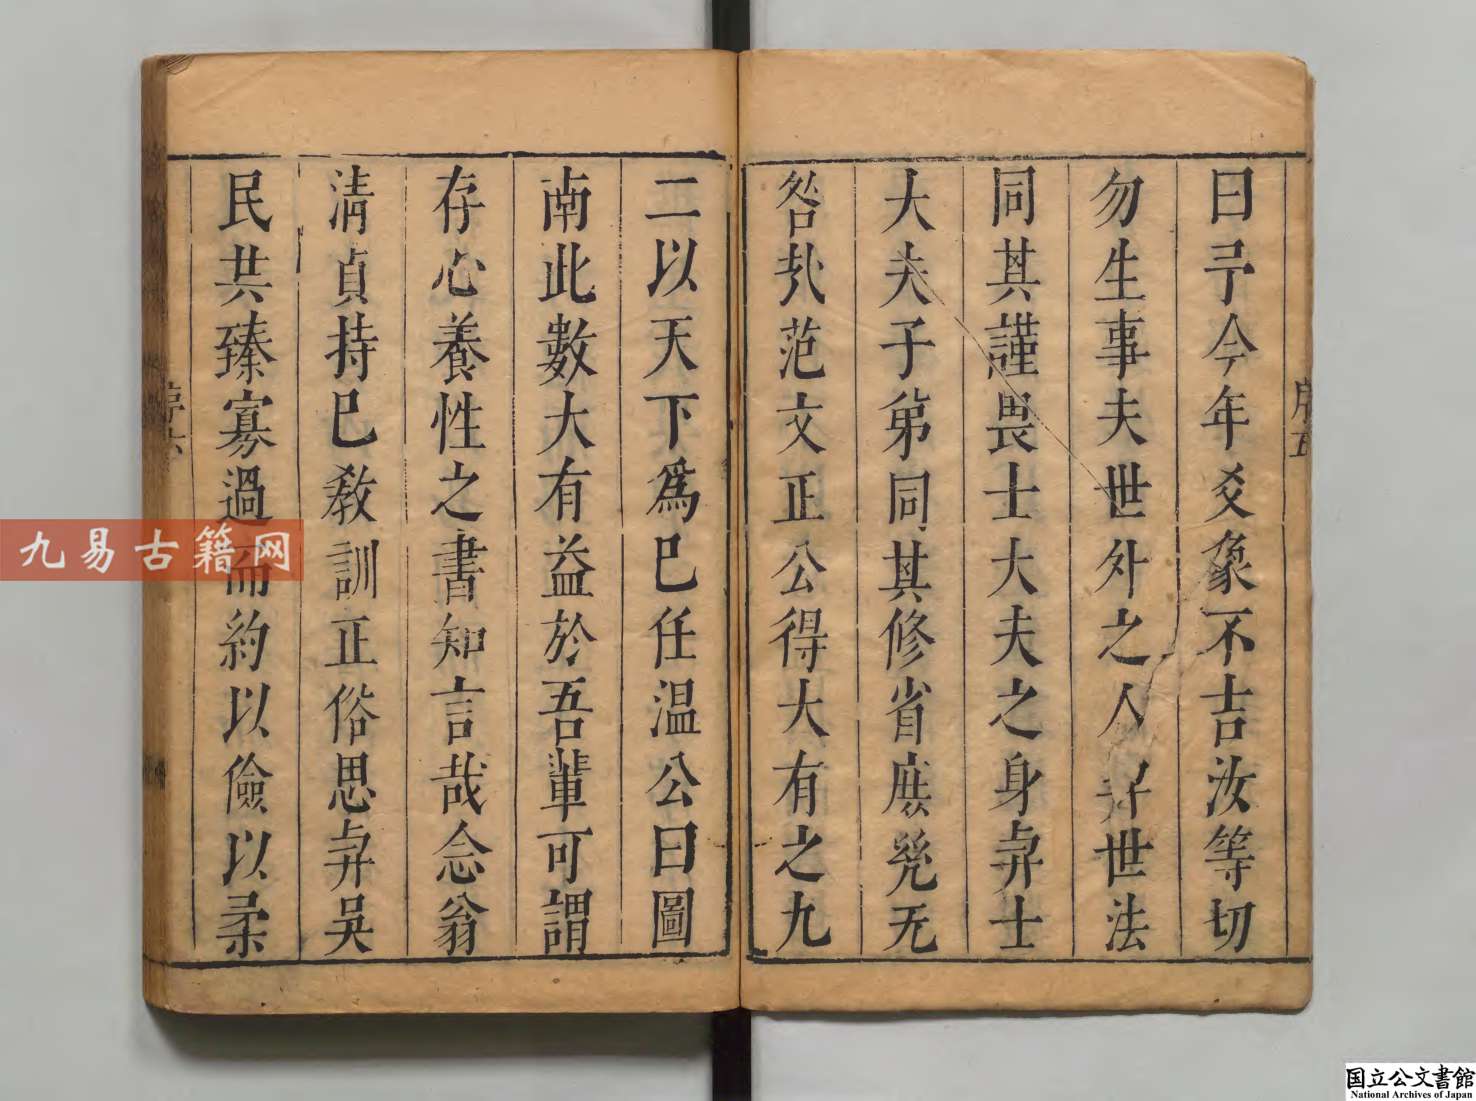 曰予今年爻象不吉汝等切
勿生事夫世外之人與世法
同其謹畏士大夫之身與士
大夫子弟同其修省庶㡬无
咎㢤范文正公得大有之九
二以天下爲己任温公曰圖
南此數大有益於吾輩可謂
存心養性之書知言哉念翁
清貞持己教訓正俗思與吳
民共臻寡過而約以儉以柔
序五
序六
九易古籍网
国立公文書館
National Archives of Japan